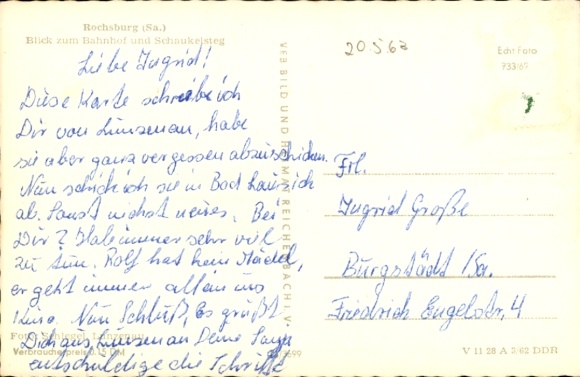 Rochsburg (Sa.)
Blick zum Bahnhof und Schaukelsteg
20.5.62
Echt Foto
733/89
Liebe Ingrid!
Diese Karte schreibe ich
Dir von Lunzenau, habe
sie aber ganz vergessen abzuschicken.
Nun schick ich sie in Bad Lausick
ab. Sonst nichst neues. Bei
Dir? Habe immer sehr viel
zu tun. Rolf hat kein Mädel,
er geht immer allein ins
Kino. Nun Schluß, Es grüßt
Dich aus Lunzenau Deine
entschuldige die Schrift
VEB BILD UND HEIMAT REICHENBACH I. V.
Frl.
Ingrid Große
Burgstädt /Sa.
Friedrich Engelstr. 4
Foto Schlegel, Lunzenau
Verbraucherpreis 0,15 DM
V 11 28 A 3/62 DDR